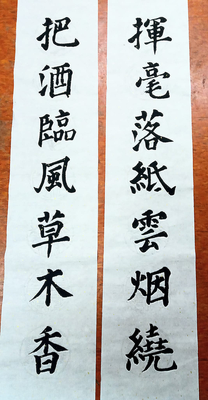 揮毫落紙雲烟繞
把酒臨風草木香